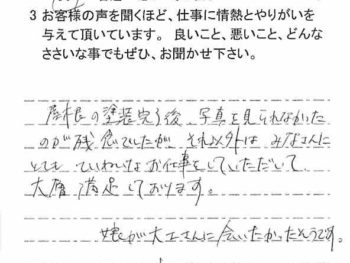 3 お客様の声を聞くほど、仕事に情熱とやりがいを
与えて頂いています。 良いこと、悪いこと、どんな
ささいな事でもぜひ、お聞かせ下さい。
屋根の塗装完了後、写真を見られなかった
のが残念でしたが、それ以外は みなさんに
とても ていねいな お仕事をしていただいて
大席 満足しております。
娘が大工さんに会いたかったそうです。